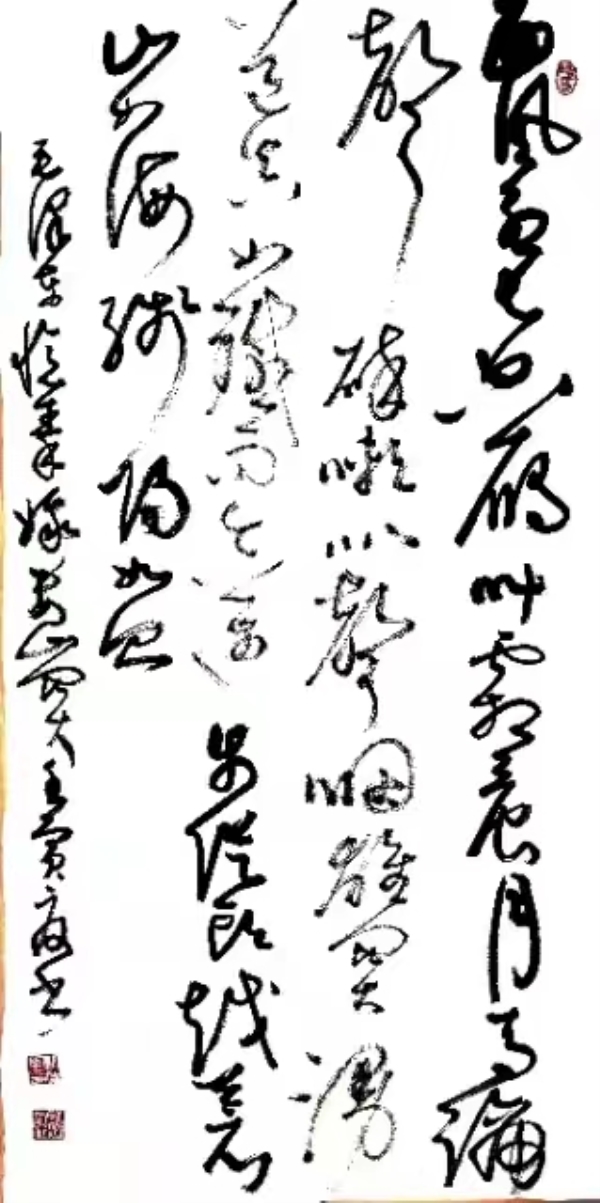 西風烈長空雁叫霜晨月馬蹄
聲碎喇叭聲咽雄關漫
道真如鐵而今邁步從頭越蒼
山如海殘陽如血
毛澤東憶秦娥婁山關壬寅書